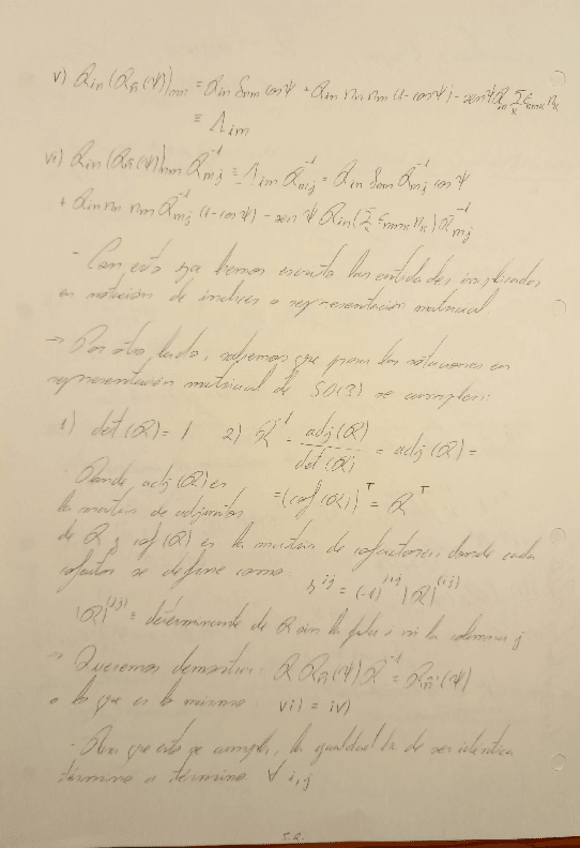 v) R_{in} (R_{n̂}(ψ))_{nm} = R_{in} δ_{nm} cos ψ + R_{in} n_n n_m (1-cos ψ) - sen ψ R_{in} Σ_k ε_{nmk} n_k
≡ Λ_{im}
vi) R_{in} (R_{n̂}(ψ))_{nm} R^{-1}_{mj} ≡ Λ_{im} R^{-1}_{mj} = R_{in} δ_{nm} R^{-1}_{mj} cos ψ
+ R_{in} n_n n_m R^{-1}_{mj} (1-cos ψ) - sen ψ R_{in} (Σ_k ε_{nmk} n_k) R^{-1}_{mj}
- Con esto ya hemos escrito las entidades implicadas
en notación de índices o representación matricial
→ Por otro lado, sabemos que para las rotaciones en
representación matricial de SO(3) se cumplen:
1) det(R) = 1 2) R^{-1} = adj(R) / det(R) = adj(R) =
= (cof(R))^T = R^T
- Donde adj(R) es
la matriz de adjuntos
de R y cof(R) es la matriz de cofactores, donde cada
cofactor se define como r^{ij} = (-1)^{i+j} |R|^{(ij)}
|R|^{(ij)} = determinante de R sin la fila i ni la columna j
→ Queremos demostrar: R R_{n̂}(ψ) R^{-1} = R_{n̂'}(ψ)
o lo que es lo mismo vi) = iv)
- Para que esto se cumpla, la igualdad ha de ser idéntica
término a término ∀ i,j
5.2.